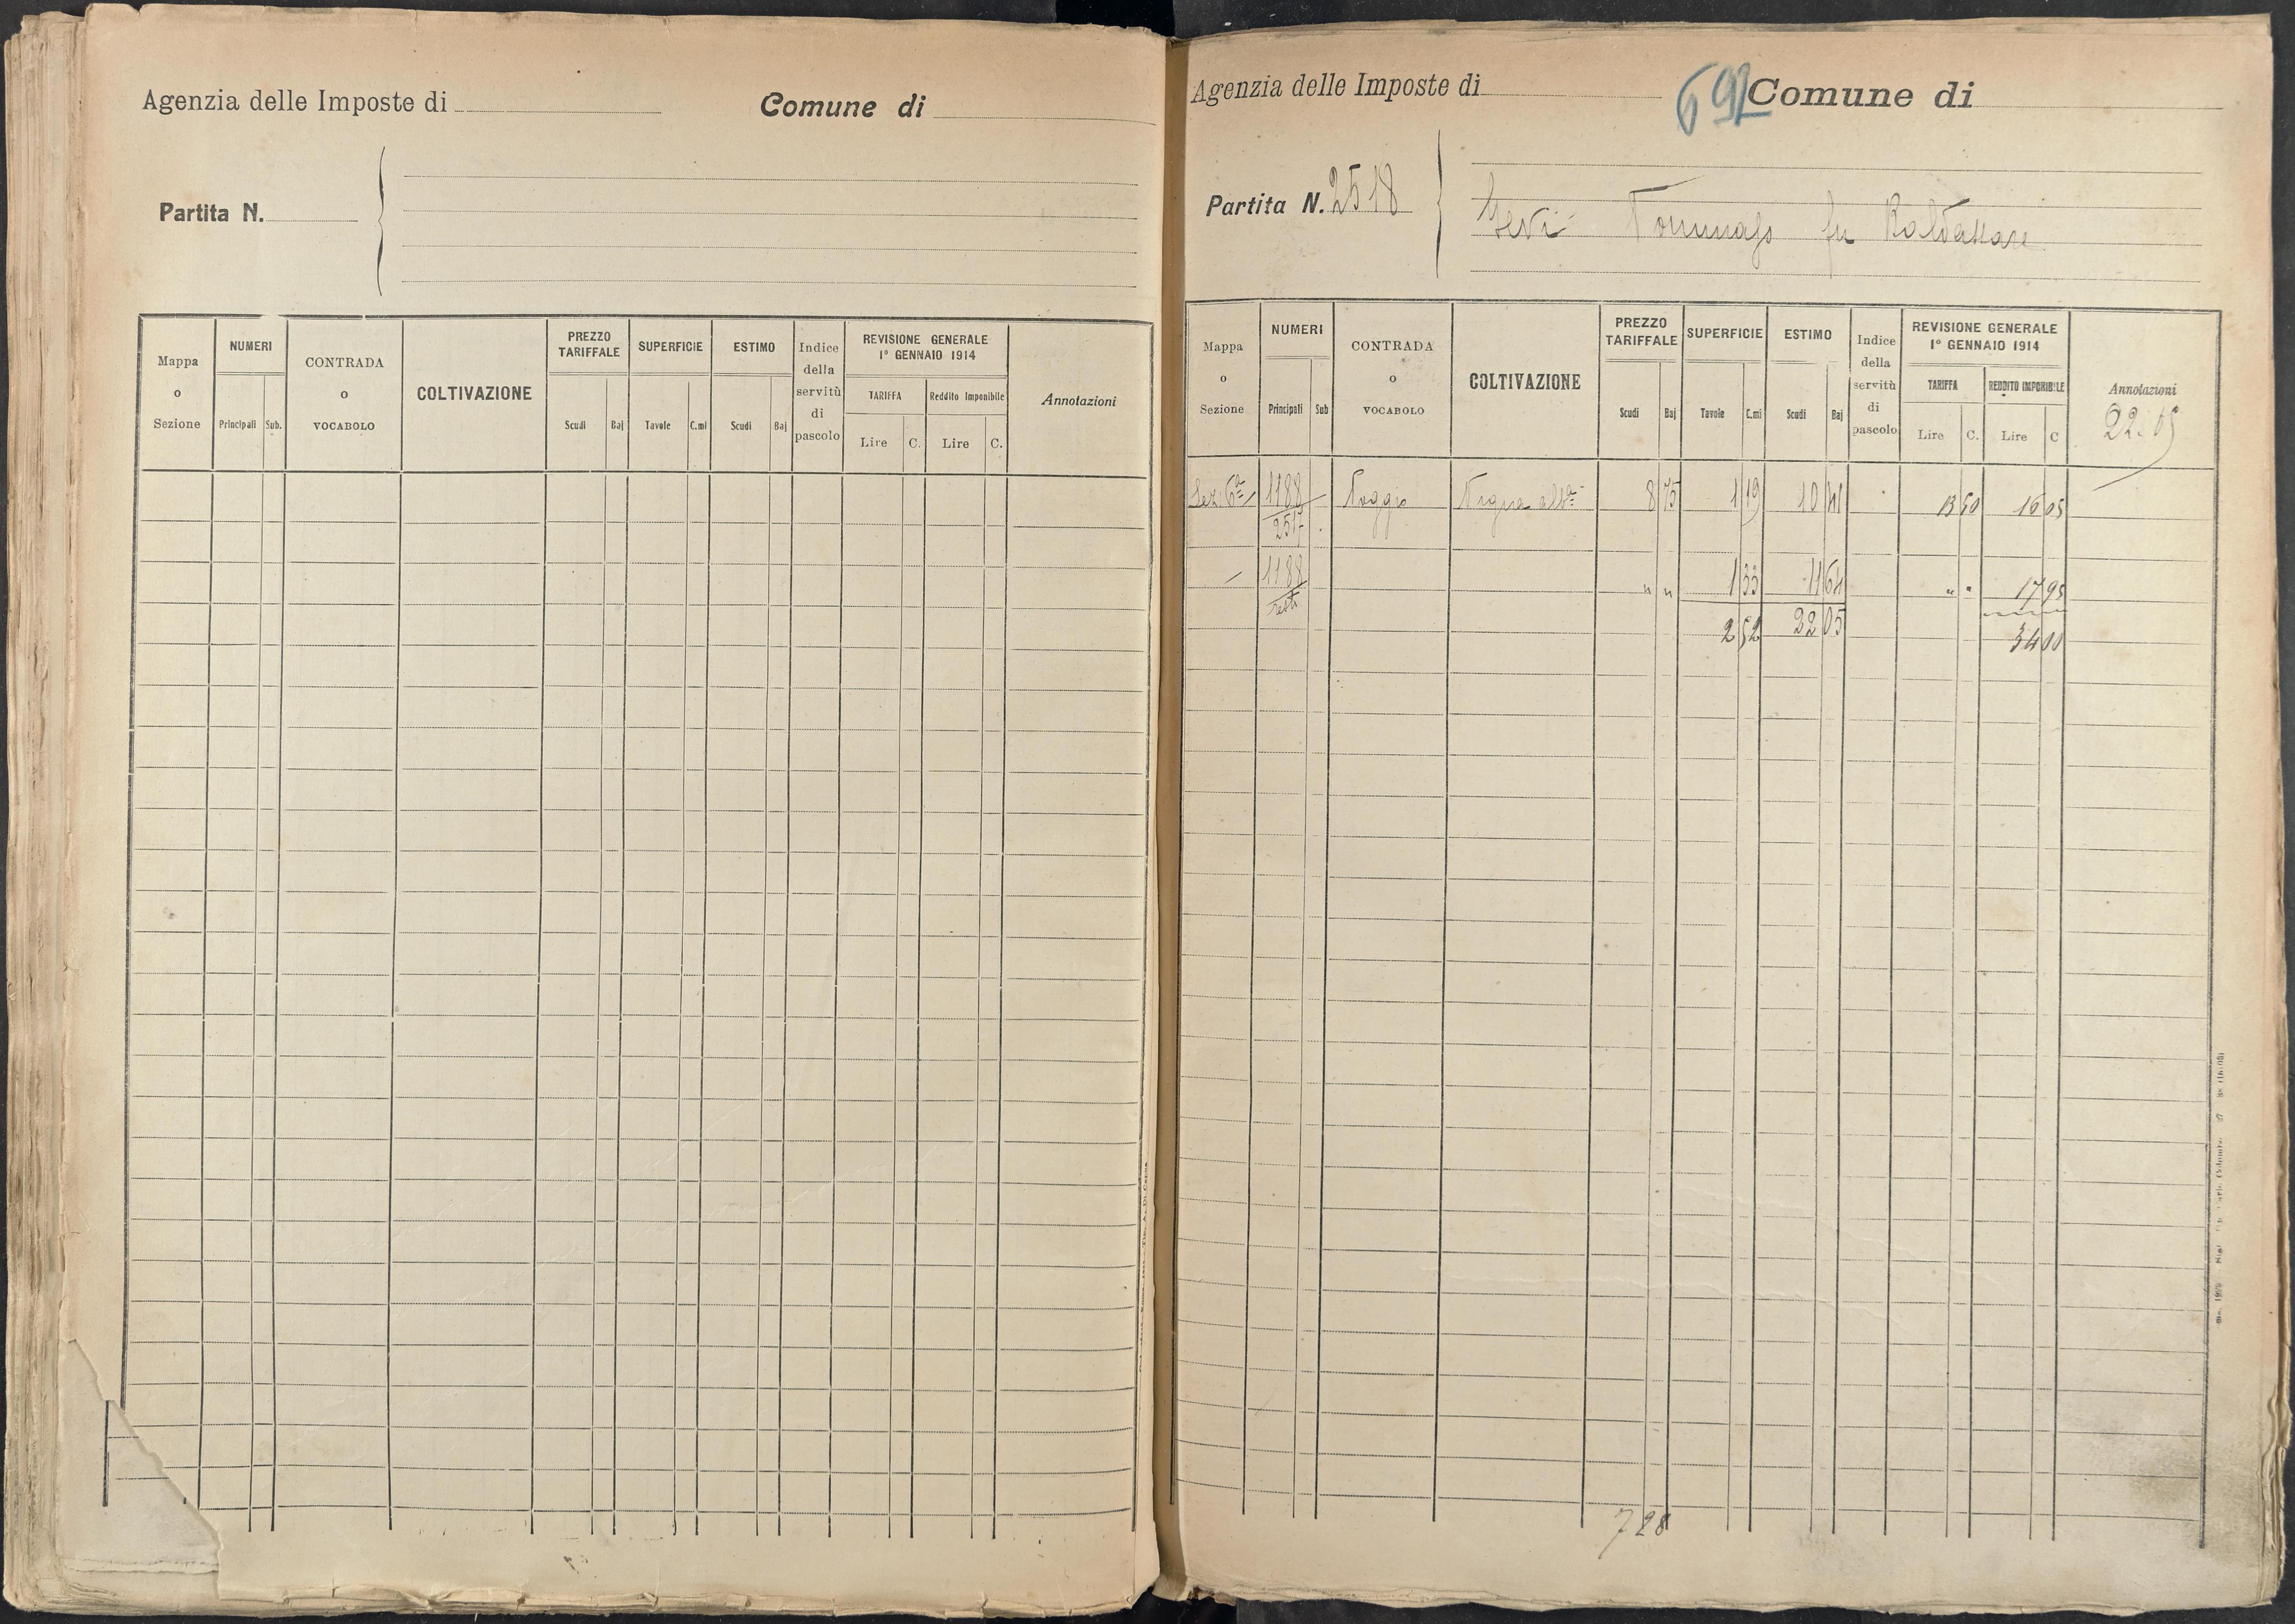 Agenzia delle Imposte di
Comune di
Partita N.
Mappa o Sezione
NUMERI
Principali
Sub.
CONTRADA o VOCABOLO
COLTIVAZIONE
PREZZO TARIFFALE
Scudi
Baj
SUPERFICIE
Tavole
C.mi
ESTIMO
Scudi
Baj
Indice della servitù di pascolo
REVISIONE GENERALE
1° GENNAIO 1914
TARIFFA
Lire
C.
Reddito Imponibile
Lire
C.
Annotazioni
Agenzia delle Imposte di
692
Comune di
Partita N. 2518
Tommaso fu Baldassare
Mappa o Sezione
NUMERI
Principali
Sub
CONTRADA o VOCABOLO
COLTIVAZIONE
PREZZO TARIFFALE
Scudi
Baj
SUPERFICIE
Tavole
C.mi
ESTIMO
Scudi
Baj
Indice della servitù di pascolo
REVISIONE GENERALE
1° GENNAIO 1914
TARIFFA
Lire
C.
REDDITO IMPONIBILE
Lire
C
Annotazioni
22.05
Sez. 6ª 1188 Poggio Vigna albª 8 75 1 19 10 41 13 50 16 05
2517
1188 " " 1 33 11 64 " " 17 95
resto
2 52 22 05 34 00
728